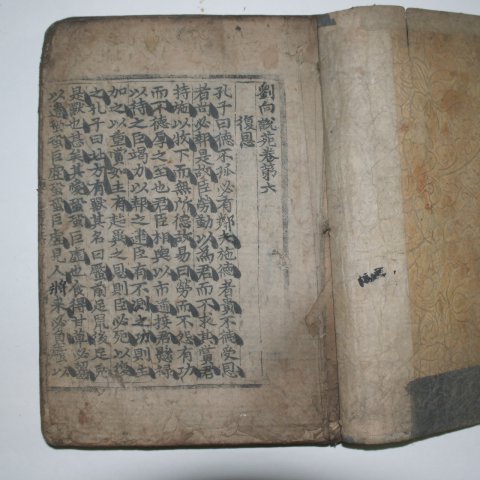 劉向說苑卷第六
復恩
孔子曰德不孤必有鄰夫施德者貴不德受恩
者尚必報是故臣勞勤以爲君而不求其賞君
持施以牧下而無所德故易曰勞而不怨有功
而不德厚之至也君臣相與以市道接君縣祿
以待之臣竭力以報之逮臣有不測之功則主
加之以重賞如主有超異之恩則臣必死以復
之孔子曰北方有獸其名曰蟨前足鼠後足兔
是獸也甚矣其愛蛩蛩巨虛也食得甘草必齧
以遺蛩蛩巨虛蛩蛩巨虛見人將來必負蟨以